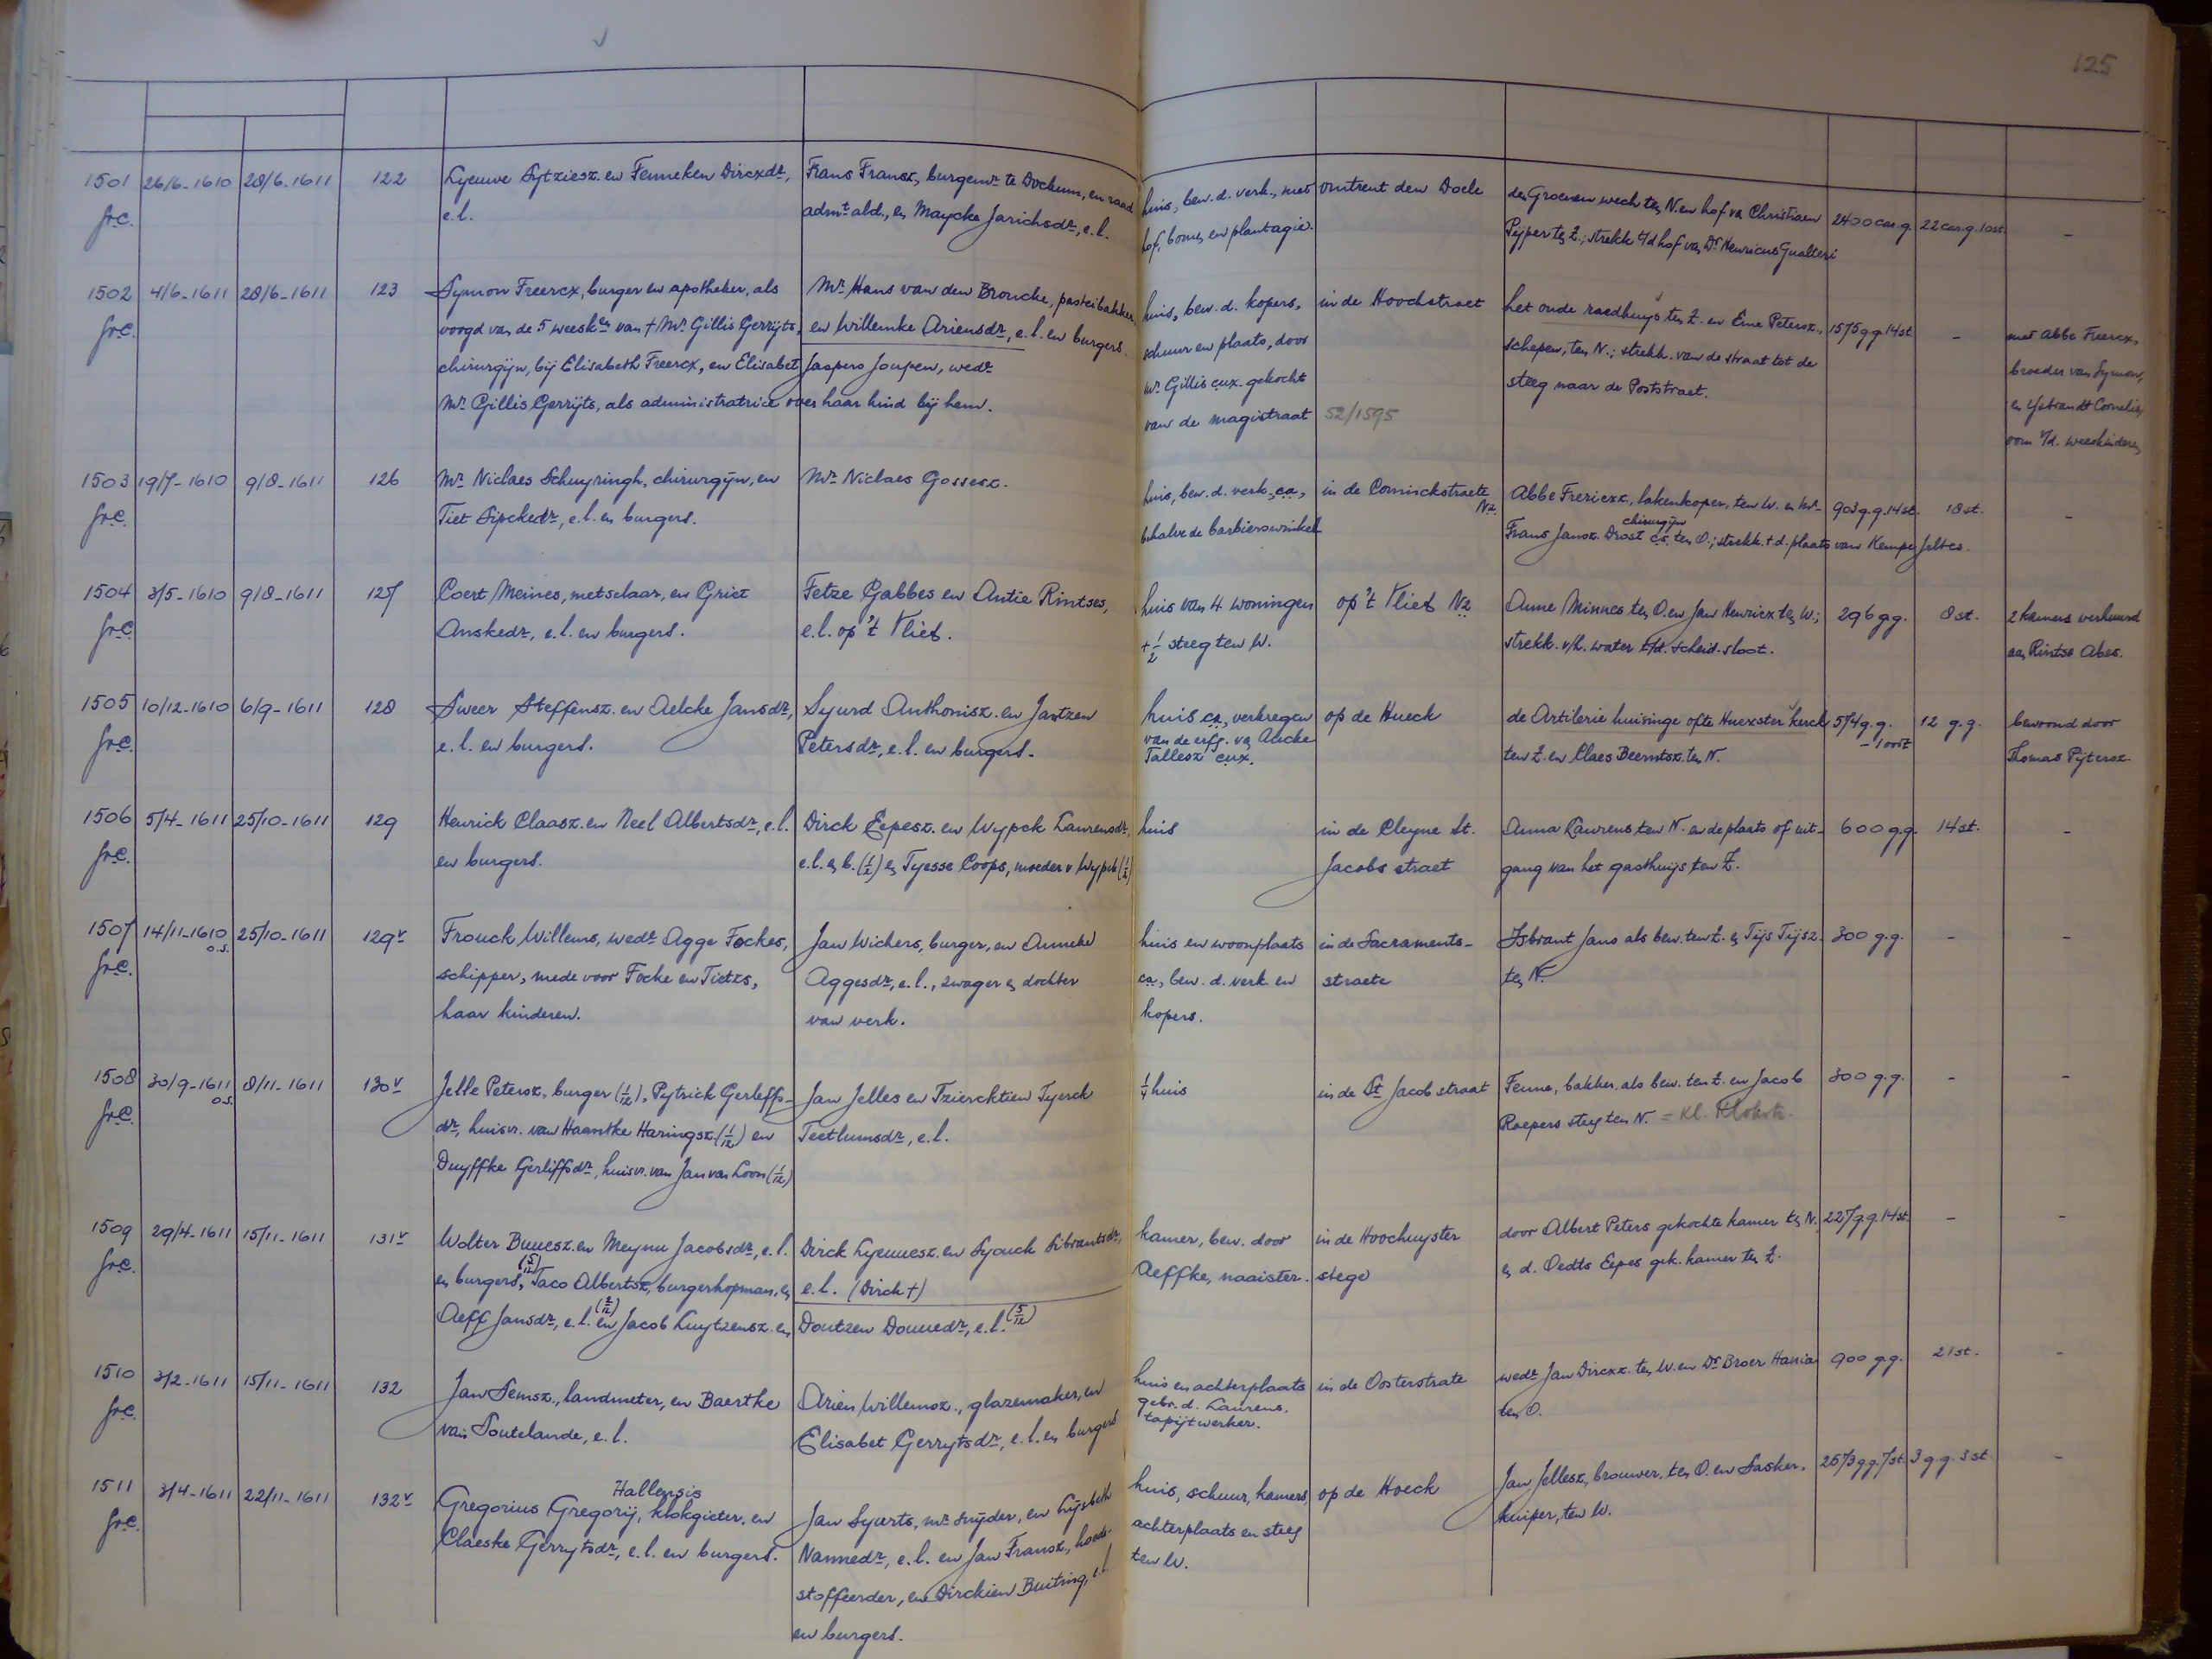 125
1501 26/6-1610 28/6-1611 122 Lyeuwe Sytziesz. en Fenneken Dircxdr, Frans Fransz, burgemr te Dockum, en raad huis, bew. d. verk., met omtrent den Doele den Groenen wech ten N. en hof va Christiaen 2400 car.g. 22 car.g. 10st. -
fr.e. e.l. admt ald., en Maycke Jarichsdr, e.l. hof, bomen en plantagie. Pijper ten Z.; strekk t/d hof van Dr Henricus Gualteri
1502 4/6-1611 28/6-1611 123 Symon Freercx, burger en apotheker, als Mr Hans van den Broucke, pasteibakker, huis, bew. d. kopers, in de Hoochstraet het oude raedhuys ten Z. en Eme Petersz., 1575 g.g. 14st - met Abbe Freercx,
fr.e. voogd van de 5 weeskn van + Mr Gillis Gerryts, en Willemke Ariensdr, e.l. en burgers. schuur en plaats, door schepen, ten N.; strekk. van de straat tot de broeder van Symon,
chirurgijn, bij Elisabeth Freercx, en Elisabet Jaspers Joupen, wedr mr Gillis cux. gekocht steeg naar de Poststraet. en Ysbrandt Cornelis,
Mr Gillis Gerrijts, als administratrice over haar kind bij hem. van de magistraat 52/1595 oom v/d. weeskinderen
1503 19/7-1610 9/8-1611 126 Mr Niclaes Schuyringh, chirurgijn, en Mr Niclaes Gossesz. huis, bew. d. verk. ca, in de Cominckstraete Nz. Abbe Frericxz, lakenkoper, ten W. en Mr 903 g.g. 14st. 18st. -
fr.e. Tiet Sipckedr, e.l. en burgers. behalve de barbierswinkel Frans Jansz. Drost chirurgijn cs. ten O.; strekk. t.d. plaats van Kempe Jeltes.
1504 3/5-1610 9/8-1611 127 Coert Meines, metselaar, en Griet Fetze Gabbes en Antie Rintses, huis van 4 woningen op 't Vliet Nz Anne Minnes ten O. en Jan Henricx ten W.; 296 gg. 8st. 2 kamers verhuurd
fr.e. Anskedr, e.l. en burgers. e.l. op 't Vliet. + 1/2 steeg ten W. strekk. v/h. water t/d. scheid-sloot. aen Rintse Abes.
1505 10/12-1610 6/9-1611 128 Sweer Steffensz. en Aelcke Jansdr, Syurd Anthonisz. en Jantzen huis ca, verkregen op de Hueck de Artilerie huisinge ofte Huexster kerck 574 g.g. 12 g.g. bewoond door
fr.e. e.l. en burgers. Petersdr, e.l. en burgers. van de erfg. va Aucke ten Z. en Claes Beerntsz. ten N. - 1 oort Thomas Pijtersz.
Tallesz cux.
1506 5/4-1611 25/10-1611 129 Henrick Claasz. en Neel Albertsdr, e.l. Dirck Eepesz. en Wypck Laurensdr, huis in de Cleyne St. Anna Laurens, ten N. en de plaats of uit- 600 g.g. 14st. -
fr.e. en burgers. e.l. en b. (1/2) en Tyesse Coops, moeder v Wypck (1/2) Jacobs straet gang van het gasthuijs ten Z.
1507 14/11-1610 o.s. 25/10-1611 129v Frouck Willems, wedr Agge Fockes, Jan Wichers, burger, en Anneke huis en woonplaats in de Sacraments- Isbrant Jans als bew. ten Z. en Tijs Tijsz. 300 g.g. - -
fr.e. schipper, mede voor Focke en Tietzs, Aggesdr, e.l., zwager en dochter ca., bew. d. verk. en straete ten N.
haar kinderen. van verk. kopers.
1508 30/9-1611 o.s. 8/11-1611 130v Jelle Petersz, burger (1/12), Pytrick Gerleffs- Jan Jelles en Tziercktien Tyerck 1/4 huis in de St Jacob straat Fenne, bakker als bew. ten Z. en Jacob 300 g.g. - -
fr.e. dr, huisvr. van Haantke Haringsz. (1/12) en Teetlumsdr, e.l. Roepers steg ten N. = Kl.
Duyffke Gerliffsdr, huisvr. van Jan van Loon (1/12)
1509 29/4-1611 15/11-1611 131v Wolter Buuesz. en Meynu Jacobsdr, e.l. Dirck Lyeuuesz. en Syouck Sibrantsdr, kamer, bew. door in de Hoochuyster door Albert Peters gekochte kamer ten N. 227 g.g. 14st. - -
fr.e. en burgers, (5/12) Taco Albertsz, burgerhopman, en e.l. (Dirck +) Aeffke, naaister. stege en d. Oedts Eepes gek. kamer ten Z.
Aeff Jansdr, e.l. (2/12) en Jacob Luytzensz. en Doutzen Douuedr, e.l. (5/12)
1510 3/2-1611 15/11-1611 132 Jan Semsz, landmeter, en Baertke Arien Willemsz., glazemaker, en huis en achterplaats in de Oosterstrate wedr Jan Dircxz. ten W. en Dr Broer Hania 900 g.g. 21st. -
fr.e. van Soutelande, e.l. Elisabet Gerrytsdr, e.l. en burgers gebr. d. Laurens, ten O.
tapijtwerker.
1511 3/4-1611 22/11-1611 132v Gregorius Gregorij, Hallensis klokgieter, en Jan Syurts, mr snyder, en Lysbeth huis, schuur, kamers, op de Hoeck Jan Jellesz, brouwer, ten O. en Sasker, 2573 g.g. 7st. 3 g.g. 3st. -
fr.e. Claeske Gerrytsdr, e.l. en burgers. Nannedr, e.l. en Jan Fransz, hoed- achterplaats en steeg kuiper, ten W.
stoffeerder, en Dirckien Buitring, e.l. ten W.
en burgers.